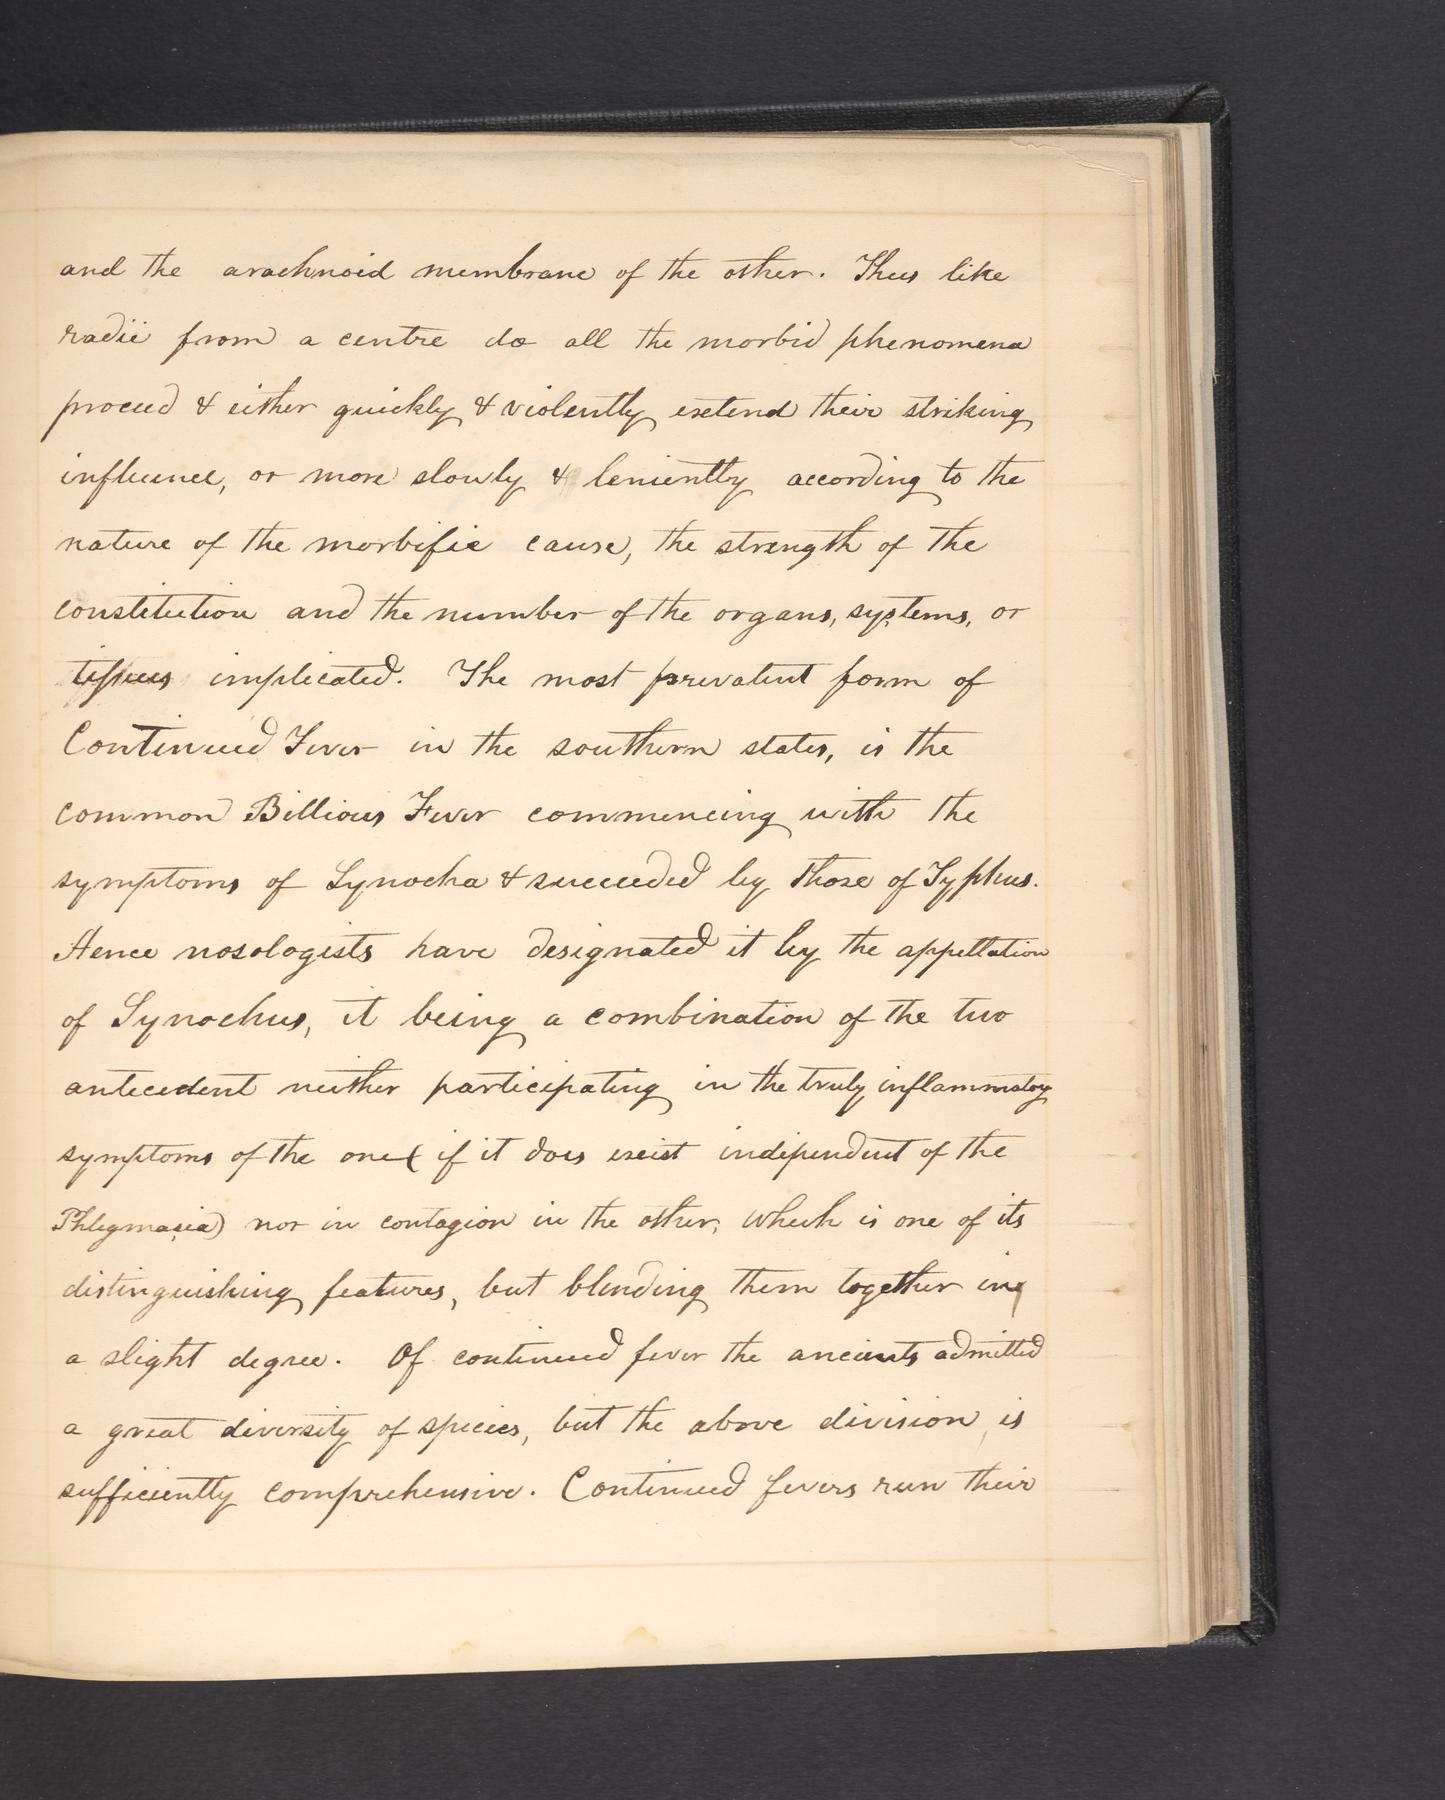 and the arachnoid membrane of the other. Thus like
radii from a centre do all the morbid phenomena
proceed & either quickly & violently extend their striking
influence, or more slowly & leniently according to the
nature of the morbific cause, the strength of the
constitution and the number of the organs, systems, or
tissues implicated. The most prevalent form of
Continued Fever in the southern states, is the
common Billious Fever commencing with the
symptoms of Synocha & succeeded by those of Typhus.
Hence nosologists have designated it by the appellation
of Synochus, it being a combination of the two
antecedent neither participating in the truly inflammatory
symptoms of the one ( if it does exist independent of the
Phlegmasia) nor in contagion in the other, which is one of its
distinguishing features, but blending them together in
a slight degree. Of continued fever the ancients admitted
a great diversity of species, but the above division is
sufficiently comprehensive. Continued fevers run their